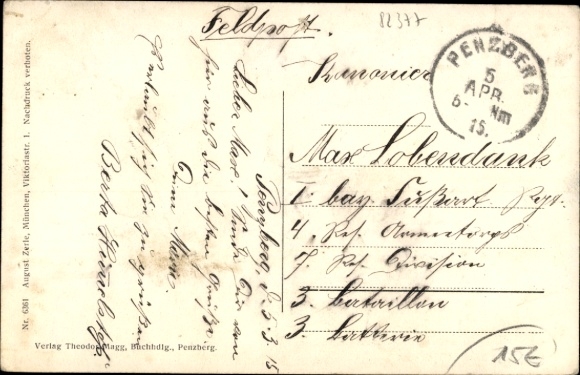 Feldpost.
82377
PENZBERG
5
APR.
Nm
15.
Kanonier
Max Lobendank
1. bay. Fußart Regt.
4 Res. Armeekorps
7. Res. Division
3. Bataillon
3. Batterie
Penzberg, d. 5.3.15
Lieber Max! Sende Dir von
hier aus die besten Grüße
Deine Mama
Berta
Nr. 6361 August Zerle, München, Viktoriastr. 1. Nachdruck verboten.
Verlag Theodor Magg, Buchhdlg., Penzberg.
15€